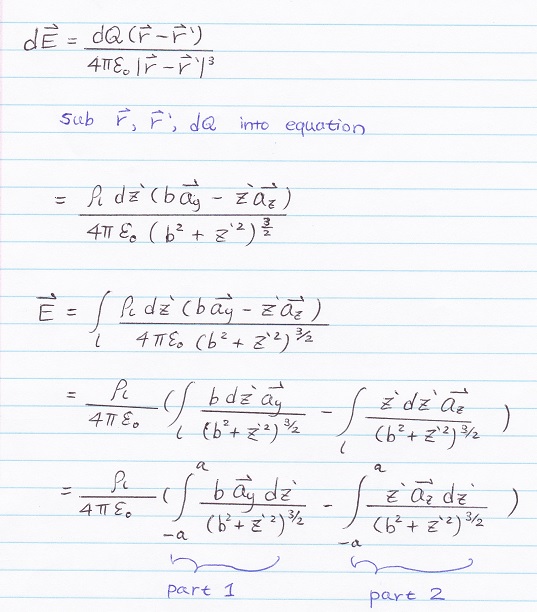 dE⃗ = dQ (r⃗ − r⃗`) / 4πε₀ |r⃗ − r⃗`|³
sub r⃗, r⃗`, dQ into equation
= ρₗ dz` (b a⃗y − z` a⃗z) / 4πε₀ (b² + z`²)^(3/2)
E⃗ = ∫ₗ ρₗ dz` (b a⃗y − z` a⃗z) / 4πε₀ (b² + z`²)^(3/2)
= ρₗ / 4πε₀ ( ∫ₗ b dz` a⃗y / (b² + z`²)^(3/2) − ∫ₗ z` dz` a⃗z / (b² + z`²)^(3/2) )
= ρₗ / 4πε₀ ( ∫₋ₐᵃ b a⃗y dz` / (b² + z`²)^(3/2) − ∫₋ₐᵃ z` a⃗z dz` / (b² + z`²)^(3/2) )
part 1 part 2